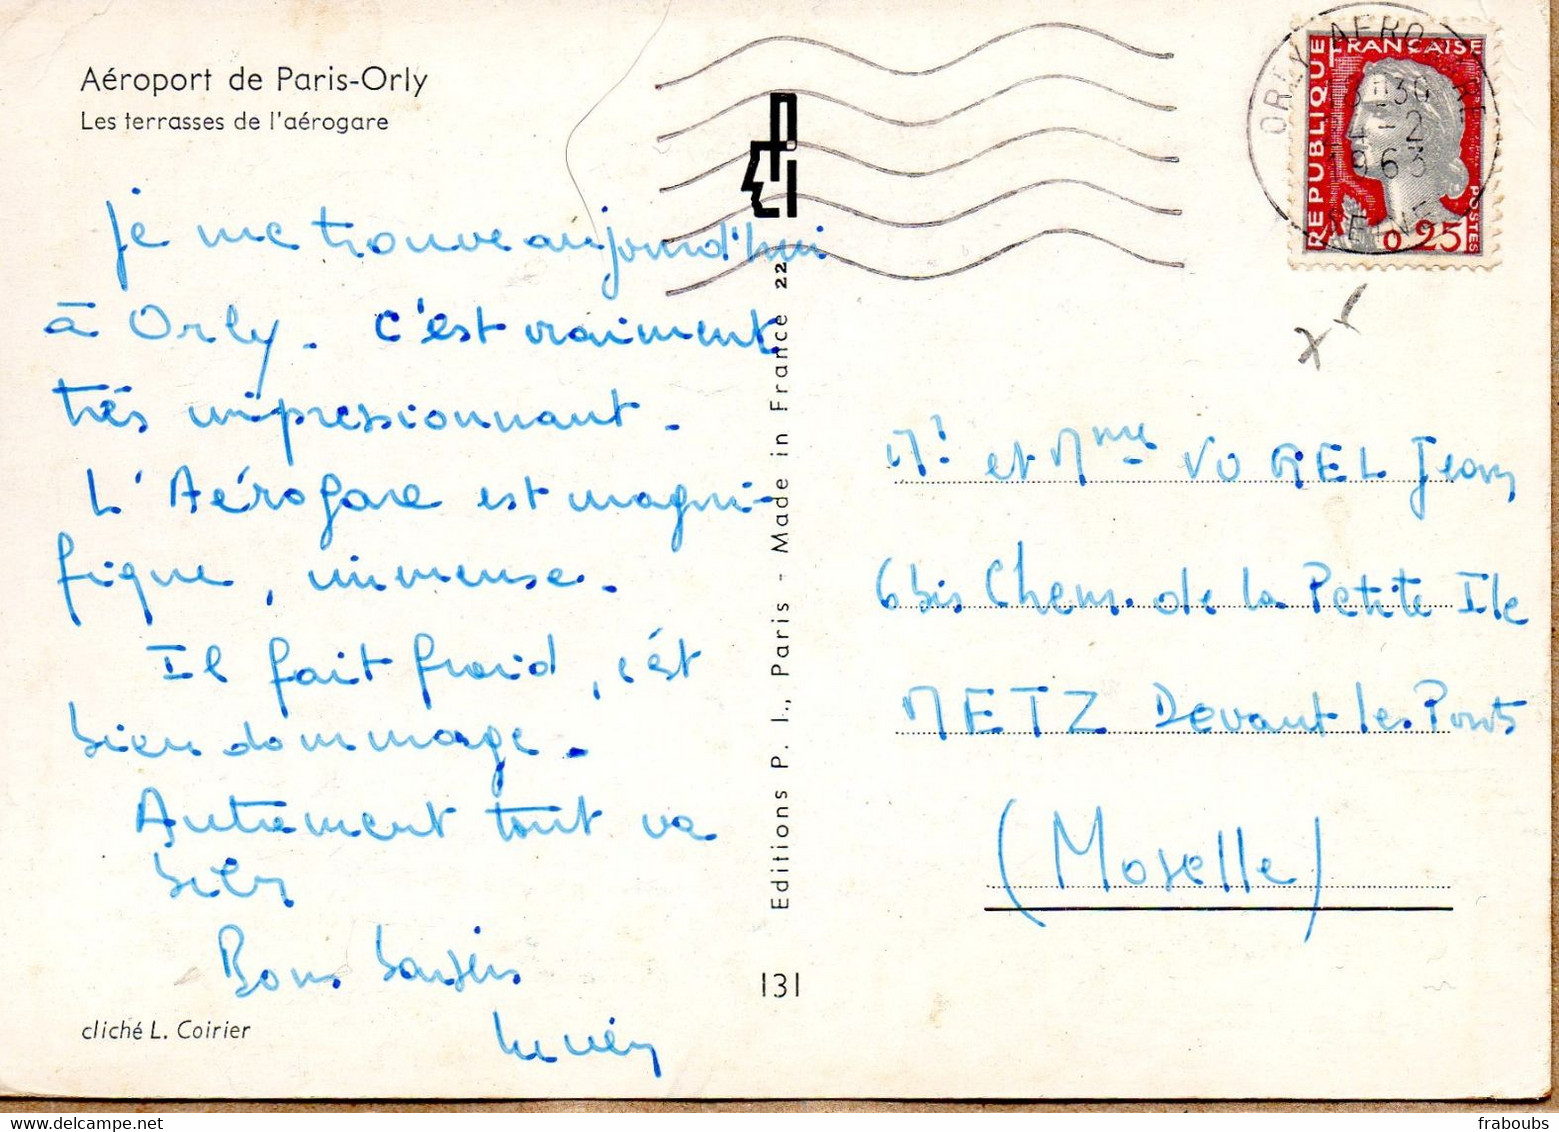 Aéroport de Paris-Orly
Les terrasses de l'aérogare
je me trouve aujourd'hui
à Orly. c'est vraiment
très impressionnant.
L'Aérogare est magni-
fique, immense.
Il fait froid, c'est
bien dommage.
Autrement tout va
bien
Bons baisers
cliché L. Coirier
Editions P. I., Paris - Made in France 22
131
ORLY AEROGARE
18-30
14-2
1963
SEINE
REPUBLIQUE FRANÇAISE
0,25
POSTES
Mr et Mme VOGEL Jean
6 bis Chem. de la Petite Ile
METZ Devant les Ponts
(Moselle)
fraboubs